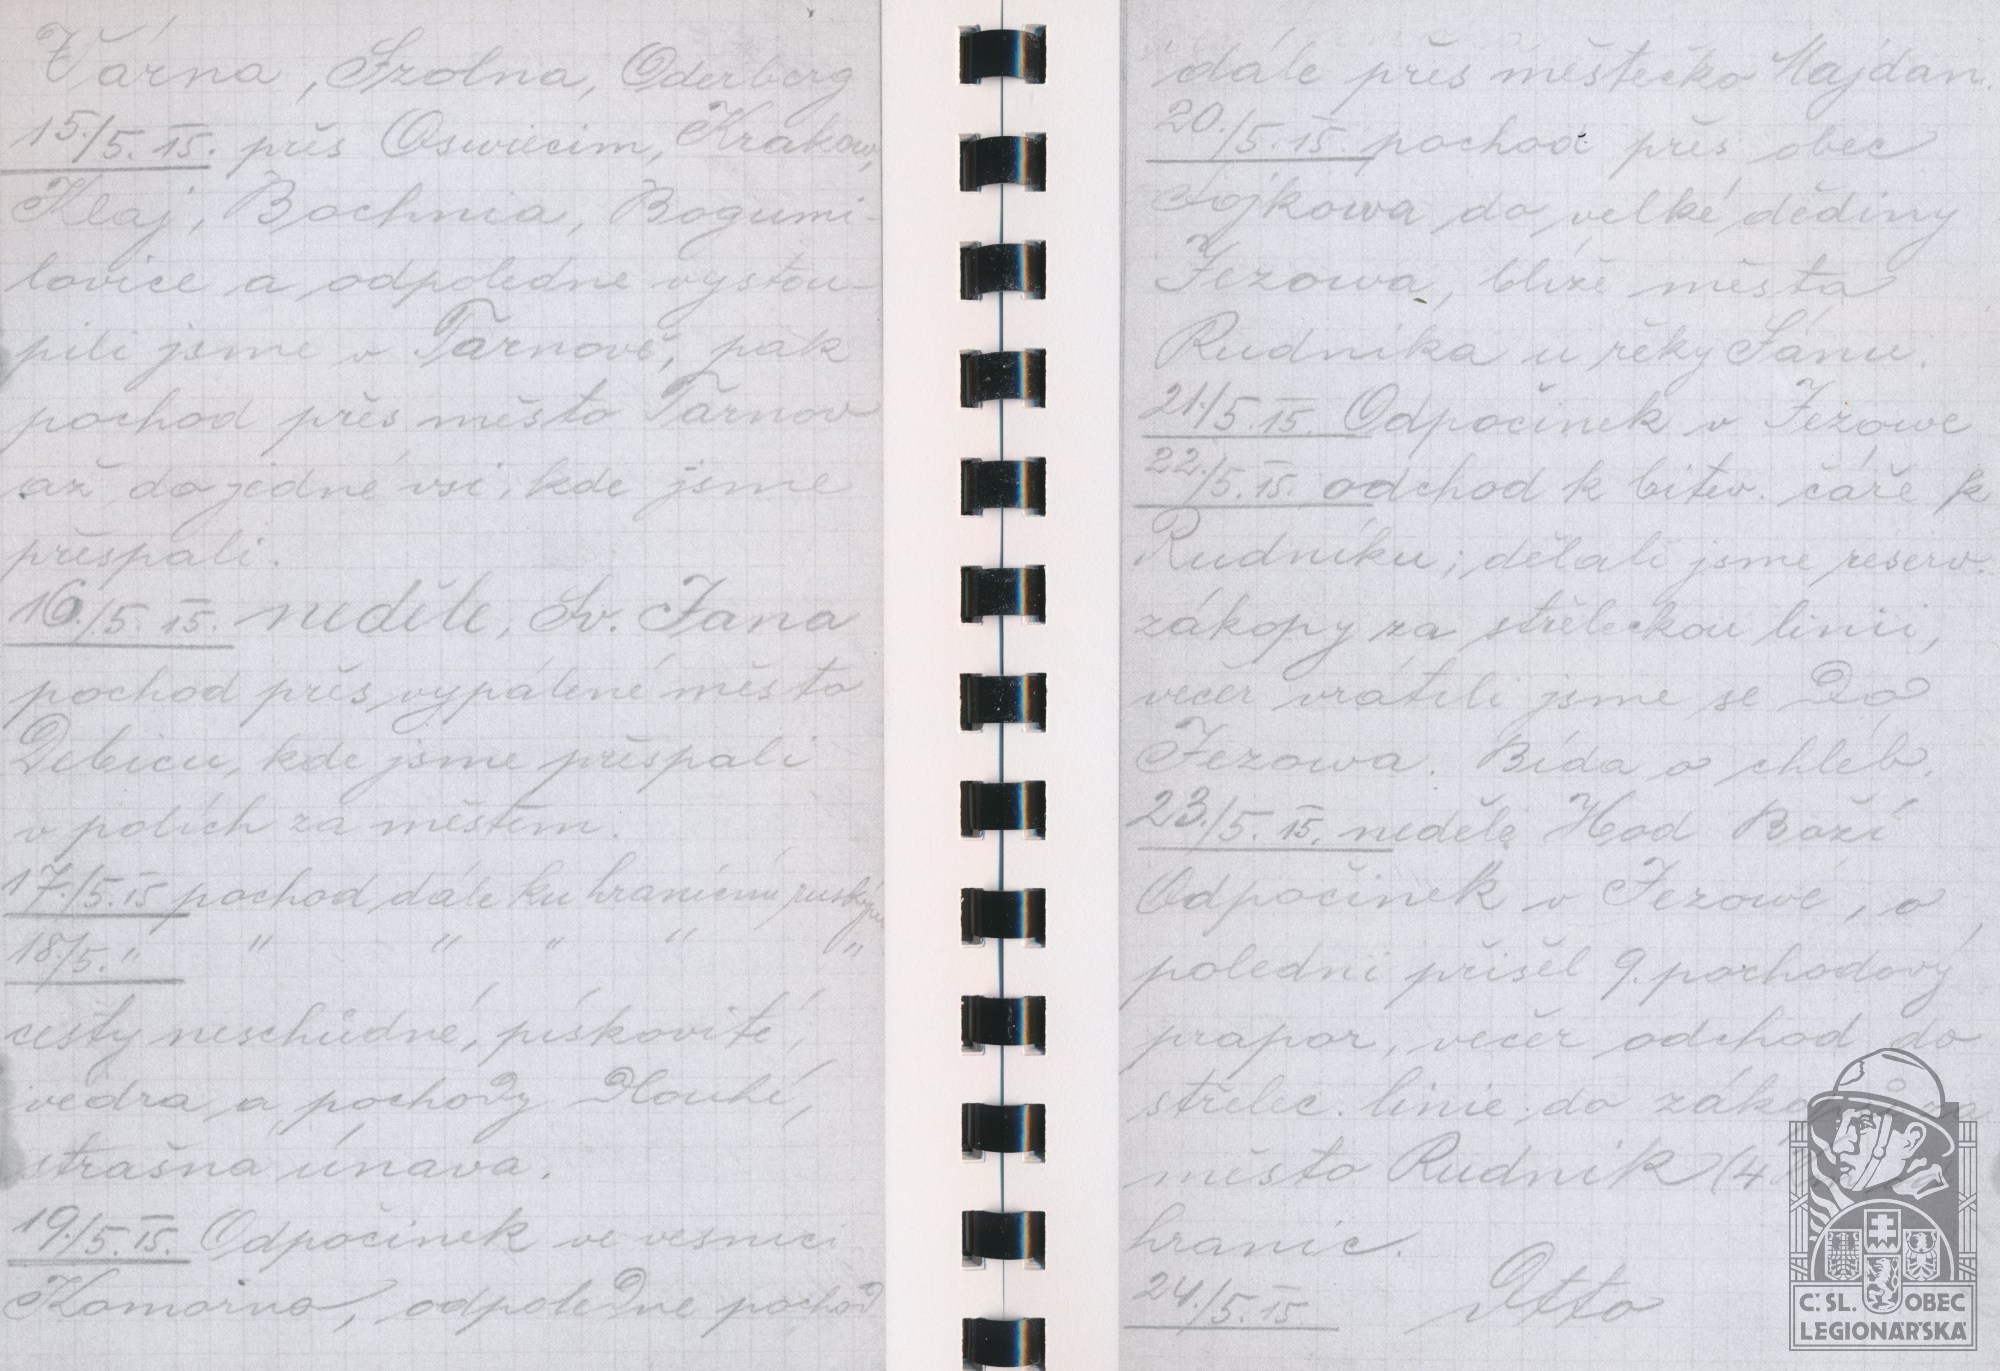 Várna, Szolna, Oderberg
15./5. 15. přes Oswiecim, Krakow,
Klaj, Bochnia, Bogumi-
lovice a odpoledne vystou-
pili jsme v Tarnově, pak
pochod přes město Tarnov
až do jedné vsi, kde jsme
přespali.
16./5. 15. neděle, Sv. Jana
pochod přes vypálené město
Debicu, kde jsme přespali
v polích za městem.
17./5. 15 pochod dále ku hranicím ruským
18./5. " " " " " "
cesty neschůdné, pískovité,
vedra a pochody dlouhé,
strašná únava.
19./5. 15. Odpočinek ve vesnici
Komorno, odpoledne pochod
dále přes městečko Majdan.
20./5. 15. pochod přes obec
Sójkowa do velké dědiny
Jezowa, blíže města
Rudnika u řěky Sánu.
21./5. 15. Odpočinek v Jezowe
22./5. 15. odchod k bitev. čáře k
Rudníku; dělali jsme reserv.
zákopy za střeleckou linii,
večer vrátili jsme se do
Jezowa. Bída o chléb.
23./5. 15. neděle Hod Boží
Odpočinek v Jezowě, o
poledni přišel 9. pochodový
prapor, večer odchod do
střelec. linie do za
město Rudnik (4
hranic.
24./5. 15 Otto
Č. SL. OBEC
LEGIONÁŘSKÁ